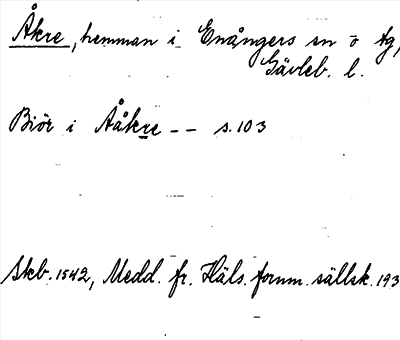 Åkre, hemman i Enångers sn o tg,
Gävleb. l.
Biör i Ååkre -- s. 103
Skb. 1542, Medd. fr. Häls. fornm. sällsk. 193